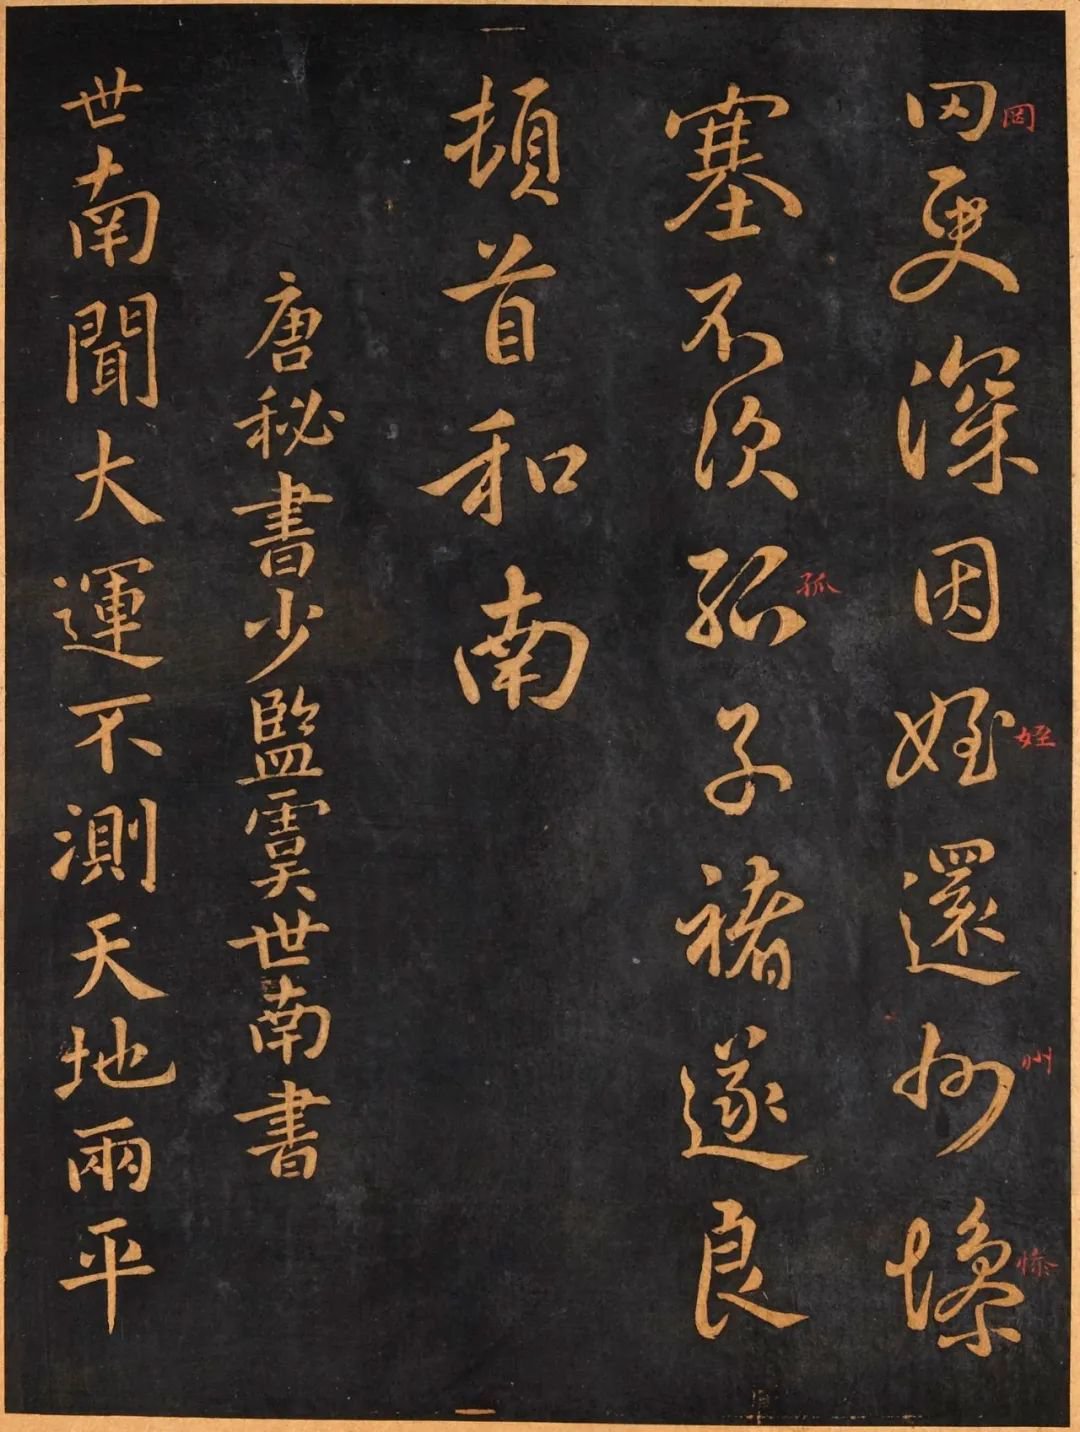 罔更深因姪還州慘
塞不次孤子褚遂良
頓首和南
唐秘書少監虞世南書
世南聞大運不測天地兩平
罔
姪
州
慘
孤